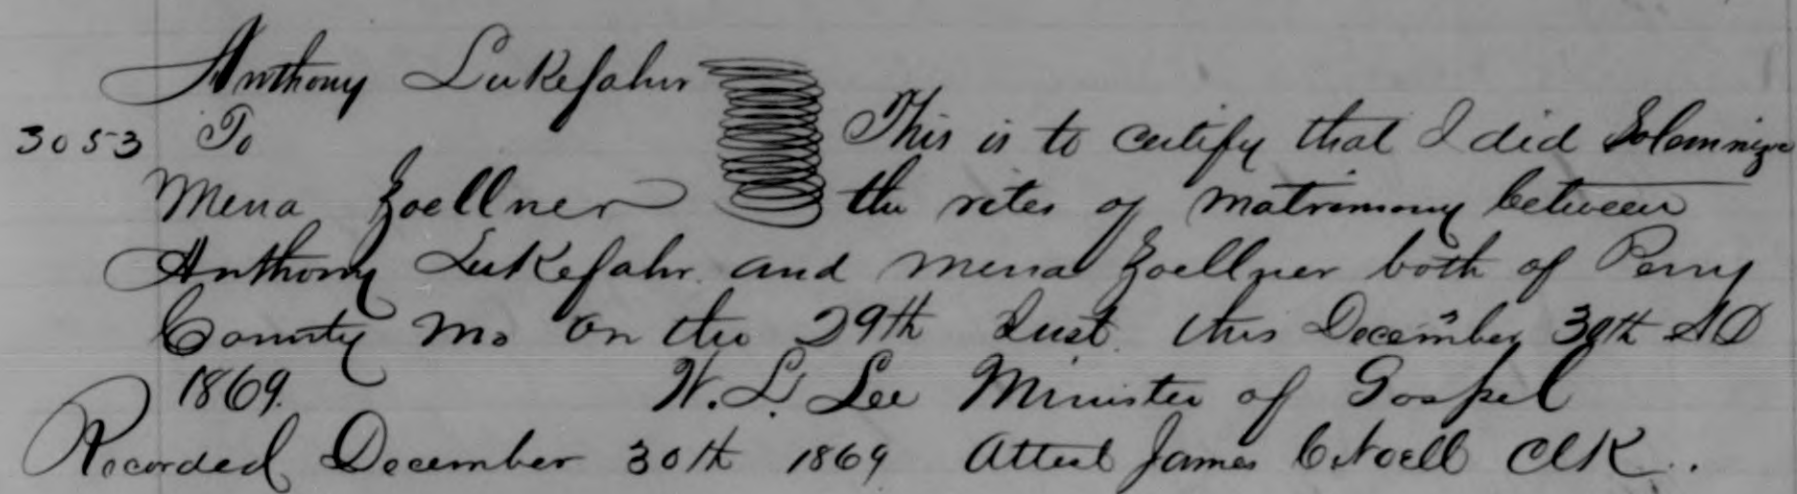 Anthony Lukefahr
3053 To This is to certify that I did Solemnize
Mena Zoellner the rites of matrimony between
Anthony Lukefahr and Mena Zoellner both of Perry
County Mo on the 29th Inst. this December 30th AD
1869. W. L. Lee Minister of Gospel
Recorded December 30th 1869 Attest James C Noell Clk.